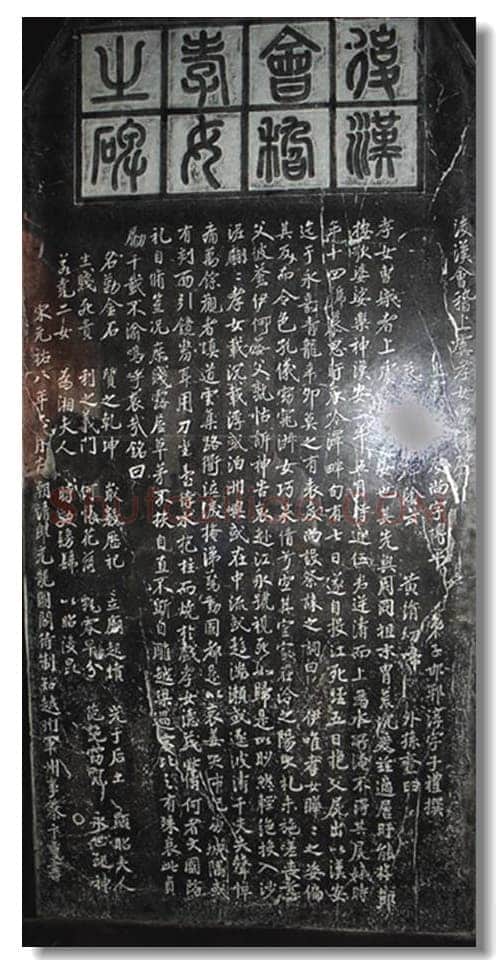 後漢
會稽
孝女
之碑
後漢會稽上虞孝女曹娥碑
尚字博平 弟子邯鄲淳字子禮撰
黃絹幼婦 外孫齏臼
孝女曹娥者上虞曹盱之女也其先與周同祖末胄荒沉爰茲適居盱能撫節
按歌婆娑樂神漢安二年五月時迎伍君逆濤而上為水所淹不得其屍娥時
年十四號慕思盱哀吟澤畔旬有七日遂自投江死經五日抱父屍出以漢安
迄于永嘉青龍辛卯莫之有表度尚設祭誄之詞曰 伊唯孝女曄曄之姿偏
其反而令色孔儀窈窕淑女巧笑倩兮宜其室家在洽之陽大禮未施嗟喪慈
父彼蒼伊何無父孰怙訴神告哀赴江永號視死如歸是以眇然輕絕投入沙
泥翩翩孝女載沉載浮或泊洲渚或在中流或趨湍瀨或逐波濤千夫失聲悼
痛萬餘觀者填道雲集路衢泣淚掩涕驚動國都是以哀姜哭市杞崩城隅或
有剋面引鏡剺耳用刀坐臺待水抱柱而燒於戲孝女德茂此儔何者大國防
禮自脩豈況庶賤露屋草茅不扶自直不斲自雕越梁過宋比之有殊哀此貞
勵千載不渝嗚呼哀哉銘曰
名勒金石 質之乾坤 歲數曆祀 立廟起墳 光于后土 顯昭夫人
生賤死貴 利之義門 何悵花落 飄零早分 葩艷窈窕 永世配神
若堯二女 為湘夫人 時效髣髴 以昭後昆
宋元祐八年正月左朝請郎充龍圖閣待制知越州軍州事蔡卞重書